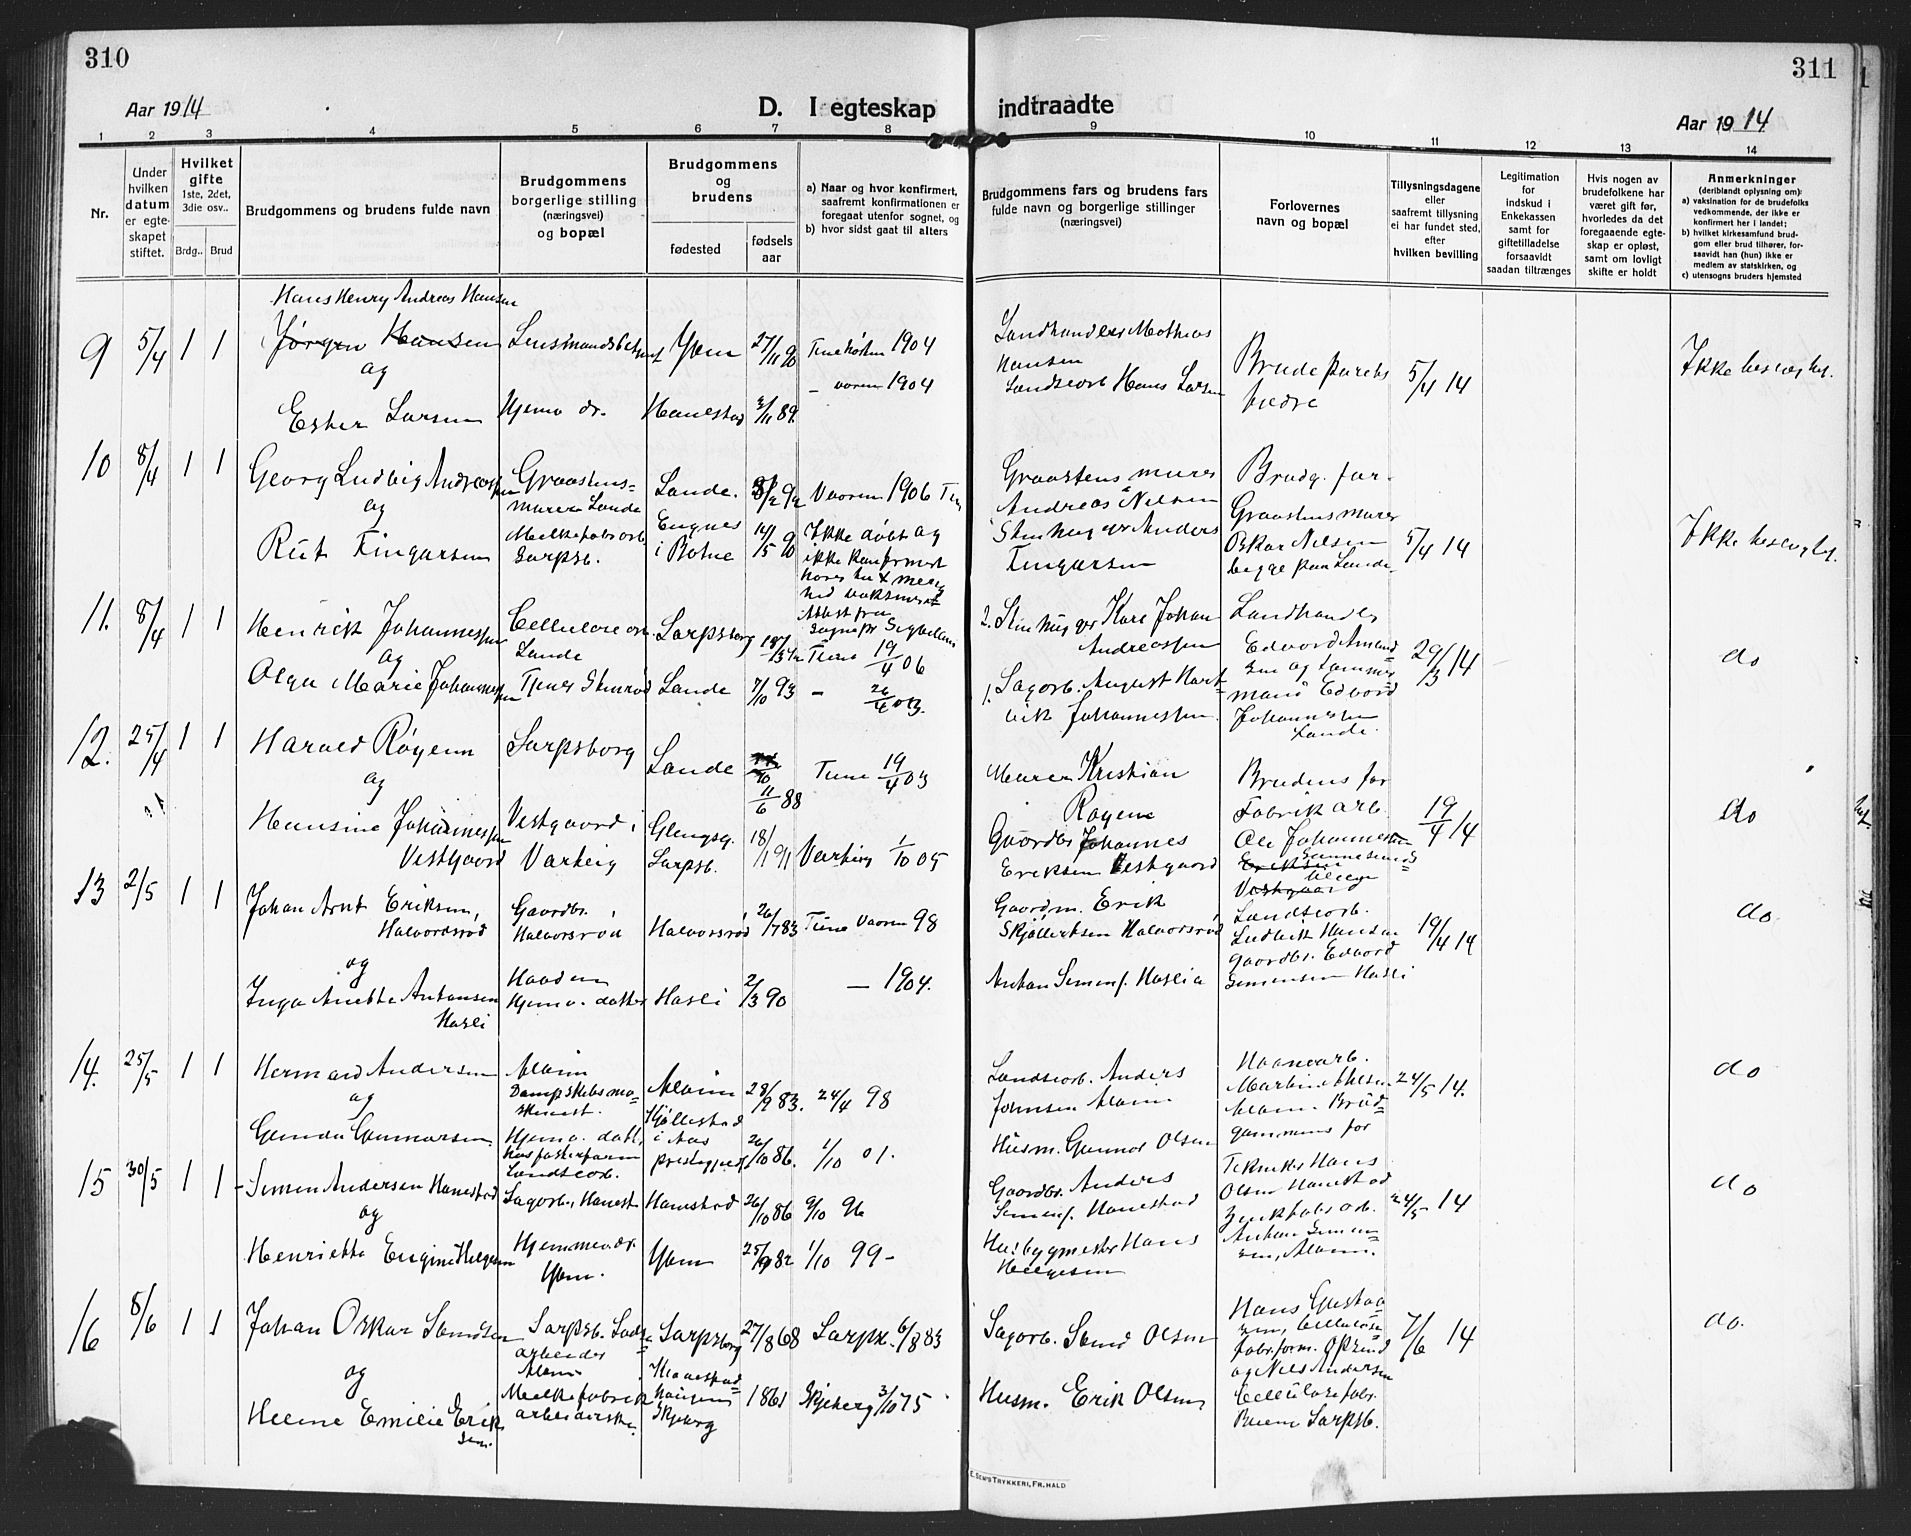 310
Aar 1914
D. I egteskap
1 2 3 4 5 6 7 8
Nr.
Under
hvilken
datum
er egte-
skapet
stiftet.
Hvilket
gifte
1ste, 2det,
3die osv..
Brdg.. Brud
Brudgommens og brudens fulde navn
Brudgommens
borgerlige stilling
(næringsvei)
og bopæl
Brudgommens
og
brudens
fødested
fødsels
aar
a) Naar og hvor konfirmert,
saafremt konfirmationen er
foregaat utenfor sognet, og
b) hvor sidst gaat til alters
Hans Henry Andreas Hansen
9 5/4 1 1 Jørgen Hansen Yven 27/11 90 Tune høsten 1904
og
– vaaren 1904
Ester Larsen Hjemv. dr. Hanestad 3/11 89.
10 8/4 1 1 Georg Ludvig Andreassen Graastens-
murer Lande Lande. 92 Vaaren 1906 Tune
og
Rut Fingarsen Melkefabr. arb.
Sarpsb. Engnes
i Botne 14/5 90 Ikke døbt og
ikke konfirmert
Attest fra
11. 8/4 1 1 Henrik Johannessen Cellulose arb.
Lande Sarpsborg Tune 19/4 06
og
Olga Marie Johannessen Tjener Stenrød Lande 7/10 93 – 26/4 03.
12. 25/4 1 1 Harald Røyem Sarpsborg Lande 11/6 88 Tune 19/4 03
og
Hansine Johannessen
Vestgaard Vestgaard i
Varteig Glengsg.
Sarpsb. 18/1 91 Varteig 1/10 05
13 2/5 1 1 Johan Arnt Eriksen,
Halvordsrød Gaardbr.
Halvorsrød Halvorsrød 26/7 83 Tune Vaaren 98
og
Inga Anette Antonsen
Hasli Hjemv. datter Hasli 2/3 90 – 1904.
14. 25/5 1 1 Hermand Andersen Alvim
Dampskibsma-
skinist. Alvim 28/9 83. 24/4 98
og
Gunda Gunnarsen Hjemv. datt.
hos fosterfaren
Landseorb. Kjøllestad
i Aas
prestegjeld 26/10 86. 1/10 01.
15 30/5 1 1 Simen Andersen Hanestad Sagarb., Hanest Hanestad 26/10 86 9/10 96
og
Henriette Engine Helgesen Hjemmev. dr.
Yven. Yven 25/9 82 1/10 99 –
16 8/6 1 1 Johan Oskar Svendsen Sarpsb.
arbeider
Alvim Sarpsborg 27/8 68 Sarpsb. 6/8 83
og
Helene Emilie Erik-
sen. Melkefabrik
arbeiderske. Skjeberg 1861 Skjeberg 3/10 75
311
indtraadte
Aar 1914
9 10 11 12 13 14
Brudgommens fars og brudens fars
fulde navn og borgerlige stillinger
(næringsvei)
Forlovernes
navn og bopæl
Tillysningsdagene
eller
saafremt tillysning
ei har fundet sted,
efter
hvilken bevilling
Legitimation
for
indskud i
Enkekassen
samt for
giftetilladelse
forsaavidt
saadan tiltrænges
Hvis nogen av
brudefolkene har
været gift før,
hvorledes da det
foregaaende egte-
skap er opløst,
samt om lovligt
skifte er holdt
Anmerkninger
(deriblandt oplysning om):
a) vaksination for de brudefolks
vedkommende, der ikke er
konfirmert her i landet;
b) hvilket kirkesamfund brud-
gom eller brud tilhører, for-
saavidt han (hun) ikke er
medlem av statskirken, og
c) utensogns bruders hjemsted
Landhandler Mathias
Hansen
Hans Larsen Brudeparets
fædre 5/4 14 Ikke beslegtet.
Graastens murer
Andreas Nilsen
Stenhugger Anders
Fingarsen Brudg. far.
Graastensmurer
Oskar Nilsen
begge paa Lande. 5/4 14 Ikke beslegtet.
2. Stenhugger Karl Johan
Andreassen
1. Sagarb. August Hart-
vik Johannessen. Landhandler
Edvard Amand-
sen og tømmer-
mand Edvard
Johannessen
Lande. 29/3 14 do
Murer Kristian
Røyem
Gaardbr. Johannes
Eriksen Vestgaard Brudens far
Fabrik arb.
Ole Johannessen
Eriksen
Vestgaard 19/4 14 do
Gaardm. Erik
Skjøllertsen Halvorsrød
Anton Simens. Haslia Landseorb.
Ludvik Hansen
Gaardbr. Edvard
Simensen Hasli 19/4 14 do
Landseorb. Anders
Johnsen Alvim
Husm. Gunnar Olsen Martin
Alvim. Brud-
gommens far 24/5 14. do
Gaardbr. Anders
Simens. Hanestad
Husbygmester Hans
Helgesen Tekniker Hans
Olsen Hanestad
Anton Simen-
sen, Alvim. 24/5 14 do
Sagarb. Svend Olsen
Husm. Erik Olsen Hans Gusta-
sen, Cellulose-
fabr. form. Opsund
og Nils Andersen
Cellulosefabr.
Sarpsb. 7/6 14 do.
E. SEM'S TRYKKERI, FR.HALD